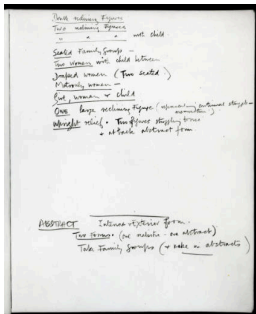 Small reclining Figures
Two reclining Figures
" " " with child
Seated Family Groups –
Two Women with child between
Draped women (Two seated)
Maternity women –
, woman & child
One large reclining Figure (
Upright relief • Two figures struggling
+ attack abstract form
ABSTRACT Interior & Exterior form –
Two Forms • (one realistic – one abstract)
Take Family Groups (+ make abstracts)